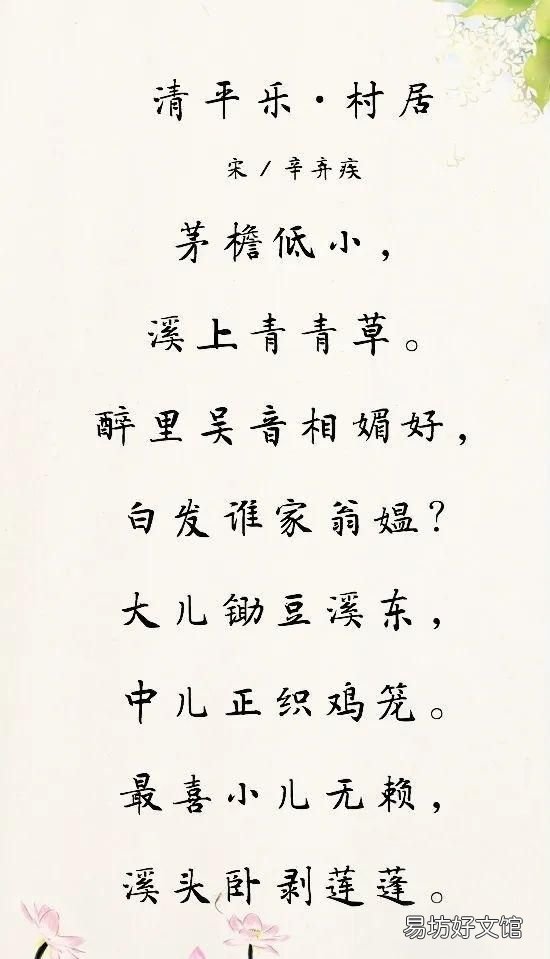 清平乐·村居
宋/辛弃疾
茅檐低小，
溪上青青草。
醉里吴音相媚好，
白发谁家翁媪？
大儿锄豆溪东，
中儿正织鸡笼。
最喜小儿无赖，
溪头卧剥莲蓬。
易坊好文馆